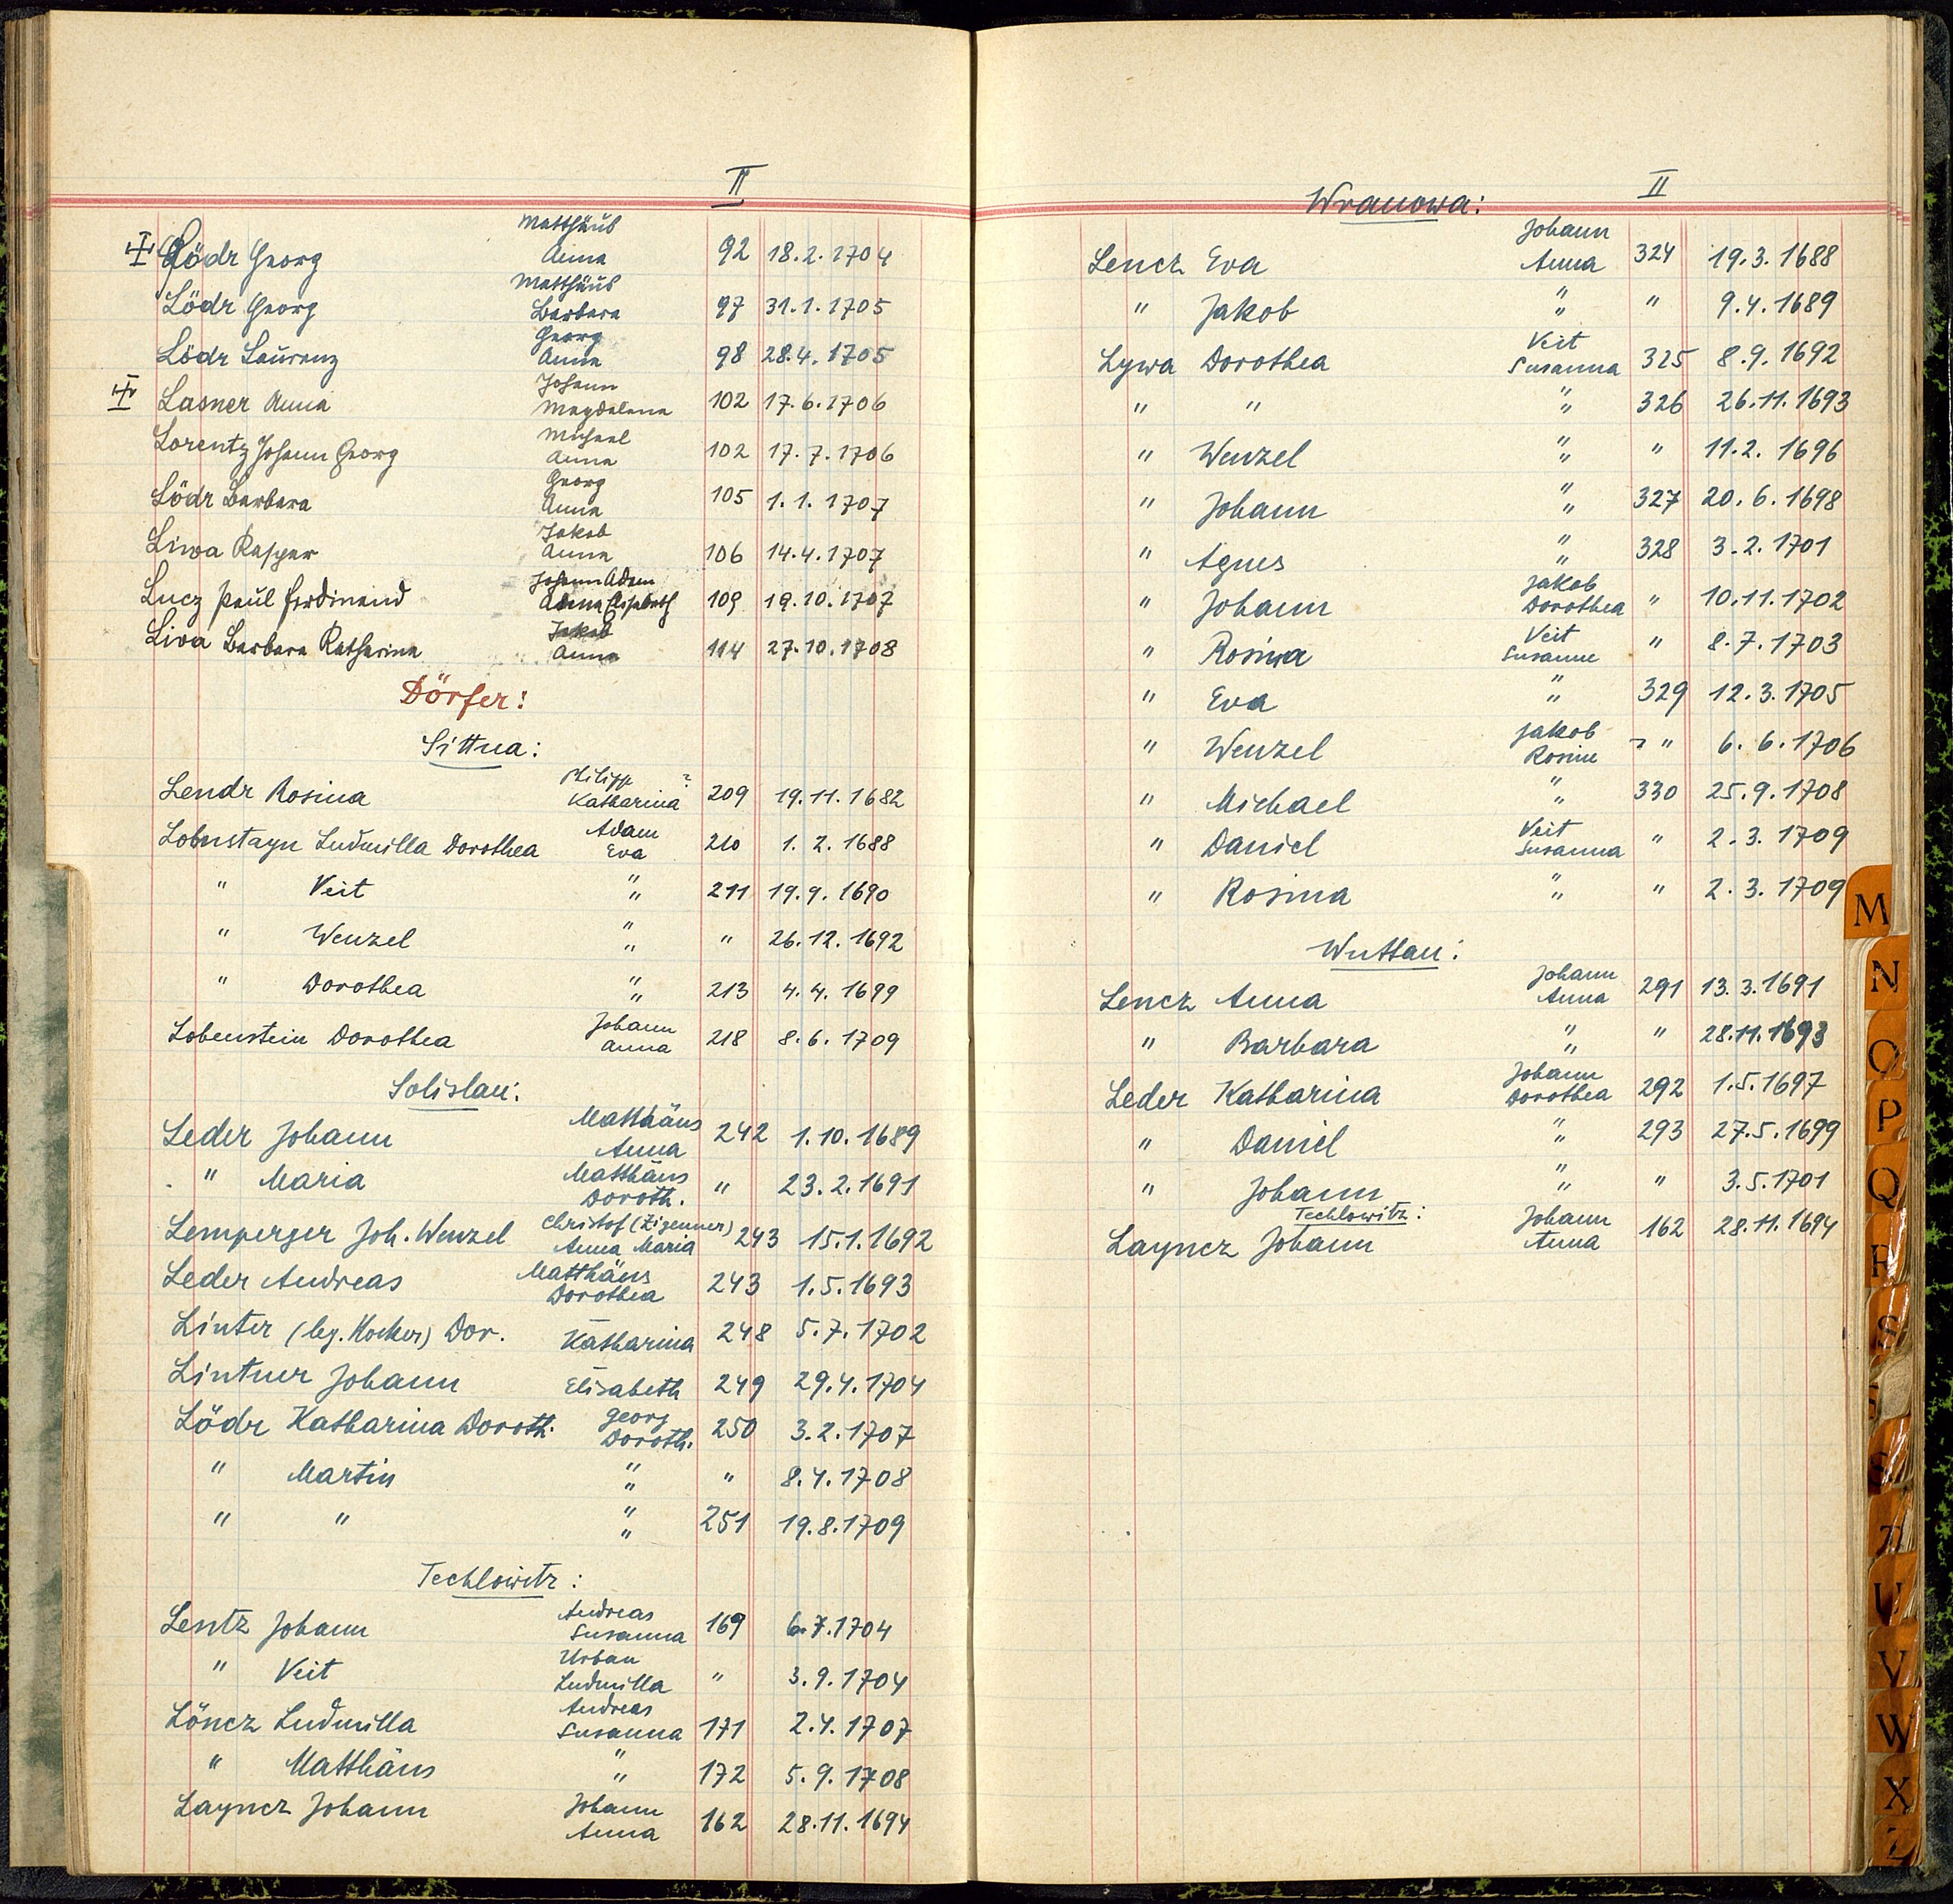 II
Matthäus
Lödr Georg Anna 92 18.2.1704
Matthäus
Lödr Georg Barbara 97 31.1.1705
Georg
Lödr Laurenz Anna 98 28.4.1705
Johann
Lasner Anna Magdalena 102 17.6.1706
Michael
Lorentz Johann Georg Anna 102 17.7.1706
Georg
Lödr Barbara Anna 105 1.1.1707
Jakob
Liwa Kaspar Anna 106 14.4.1707
Johann Adam
Lucz Paul Ferdinand Anna Elisabeth 109 19.10.1707
Jakob
Liva Barbara Katharina Anna 114 27.10.1708
Dörfer:
Sittna:
Philipp ?
Lendr Rosina Katharina 209 19.11.1682
Adam
Lobnstayn Ludmilla Dorothea Eva 210 1.2.1688
" Veit " " 211 19.9.1690
" Wenzel " " " 26.12.1692
" Dorothea " " 213 4.4.1699
Johann
Lobenstein Dorothea Anna 218 8.6.1709
Solislau:
Matthäus
Leder Johann Anna 242 1.10.1689
Matthäus
" Maria Doroth. " 23.2.1691
Christof (Zigeuner)
Lemperger Joh. Wenzel Anna Maria 243 15.1.1692
Matthäus
Leder Andreas Dorothea 243 1.5.1693
Linter (leg. Hocker) Dor. – Katharina 248 5.7.1702
Lintner Johann – Elisabeth 249 29.4.1704
Georg
Lödr Katharina Doroth. Doroth. 250 3.2.1707
" Martin " " " 8.4.1708
" " " " 251 19.8.1709
Techlowitz:
Andreas
Lentz Johann Susanna 169 6.7.1704
Urban
" Veit Ludmilla " 3.9.1704
Andreas
Löncz Ludmilla Susanna 171 2.4.1707
" Matthäus " " 172 5.9.1708
Johann
Layncz Johann Anna 162 28.11.1694
II
Wranowa:
Johann
Lencz Eva Anna 324 19.3.1688
" Jakob " " " 9.4.1689
Veit
Lywa Dorothea Susanna 325 8.9.1692
" " " " 326 26.11.1693
" Wenzel " " " 11.2.1696
" Johann " " 327 20.6.1698
" Agnes " " 328 3.2.1701
Jakob
" Johann Dorothea " 10.11.1702
Veit
" Rosina Susanne " 8.7.1703
" Eva " " 329 12.3.1705
Jakob
" Wenzel Rosine " 6.6.1706
" Michael " " 330 25.9.1708
Veit
" Daniel Susanna " 2.3.1709
" Rosina " " " 2.3.1709
Wuttau:
Johann
Lencz Anna Anna 291 13.3.1691
" Barbara " " " 28.11.1693
Johann
Leder Katharina Dorothea 292 1.5.1697
" Daniel " " 293 27.5.1699
" Johann " " " 3.5.1701
Techlowitz:
Johann
Layncz Johann Anna 162 28.11.1694
M
N
O
P
Q
R
S
U
V
W
X